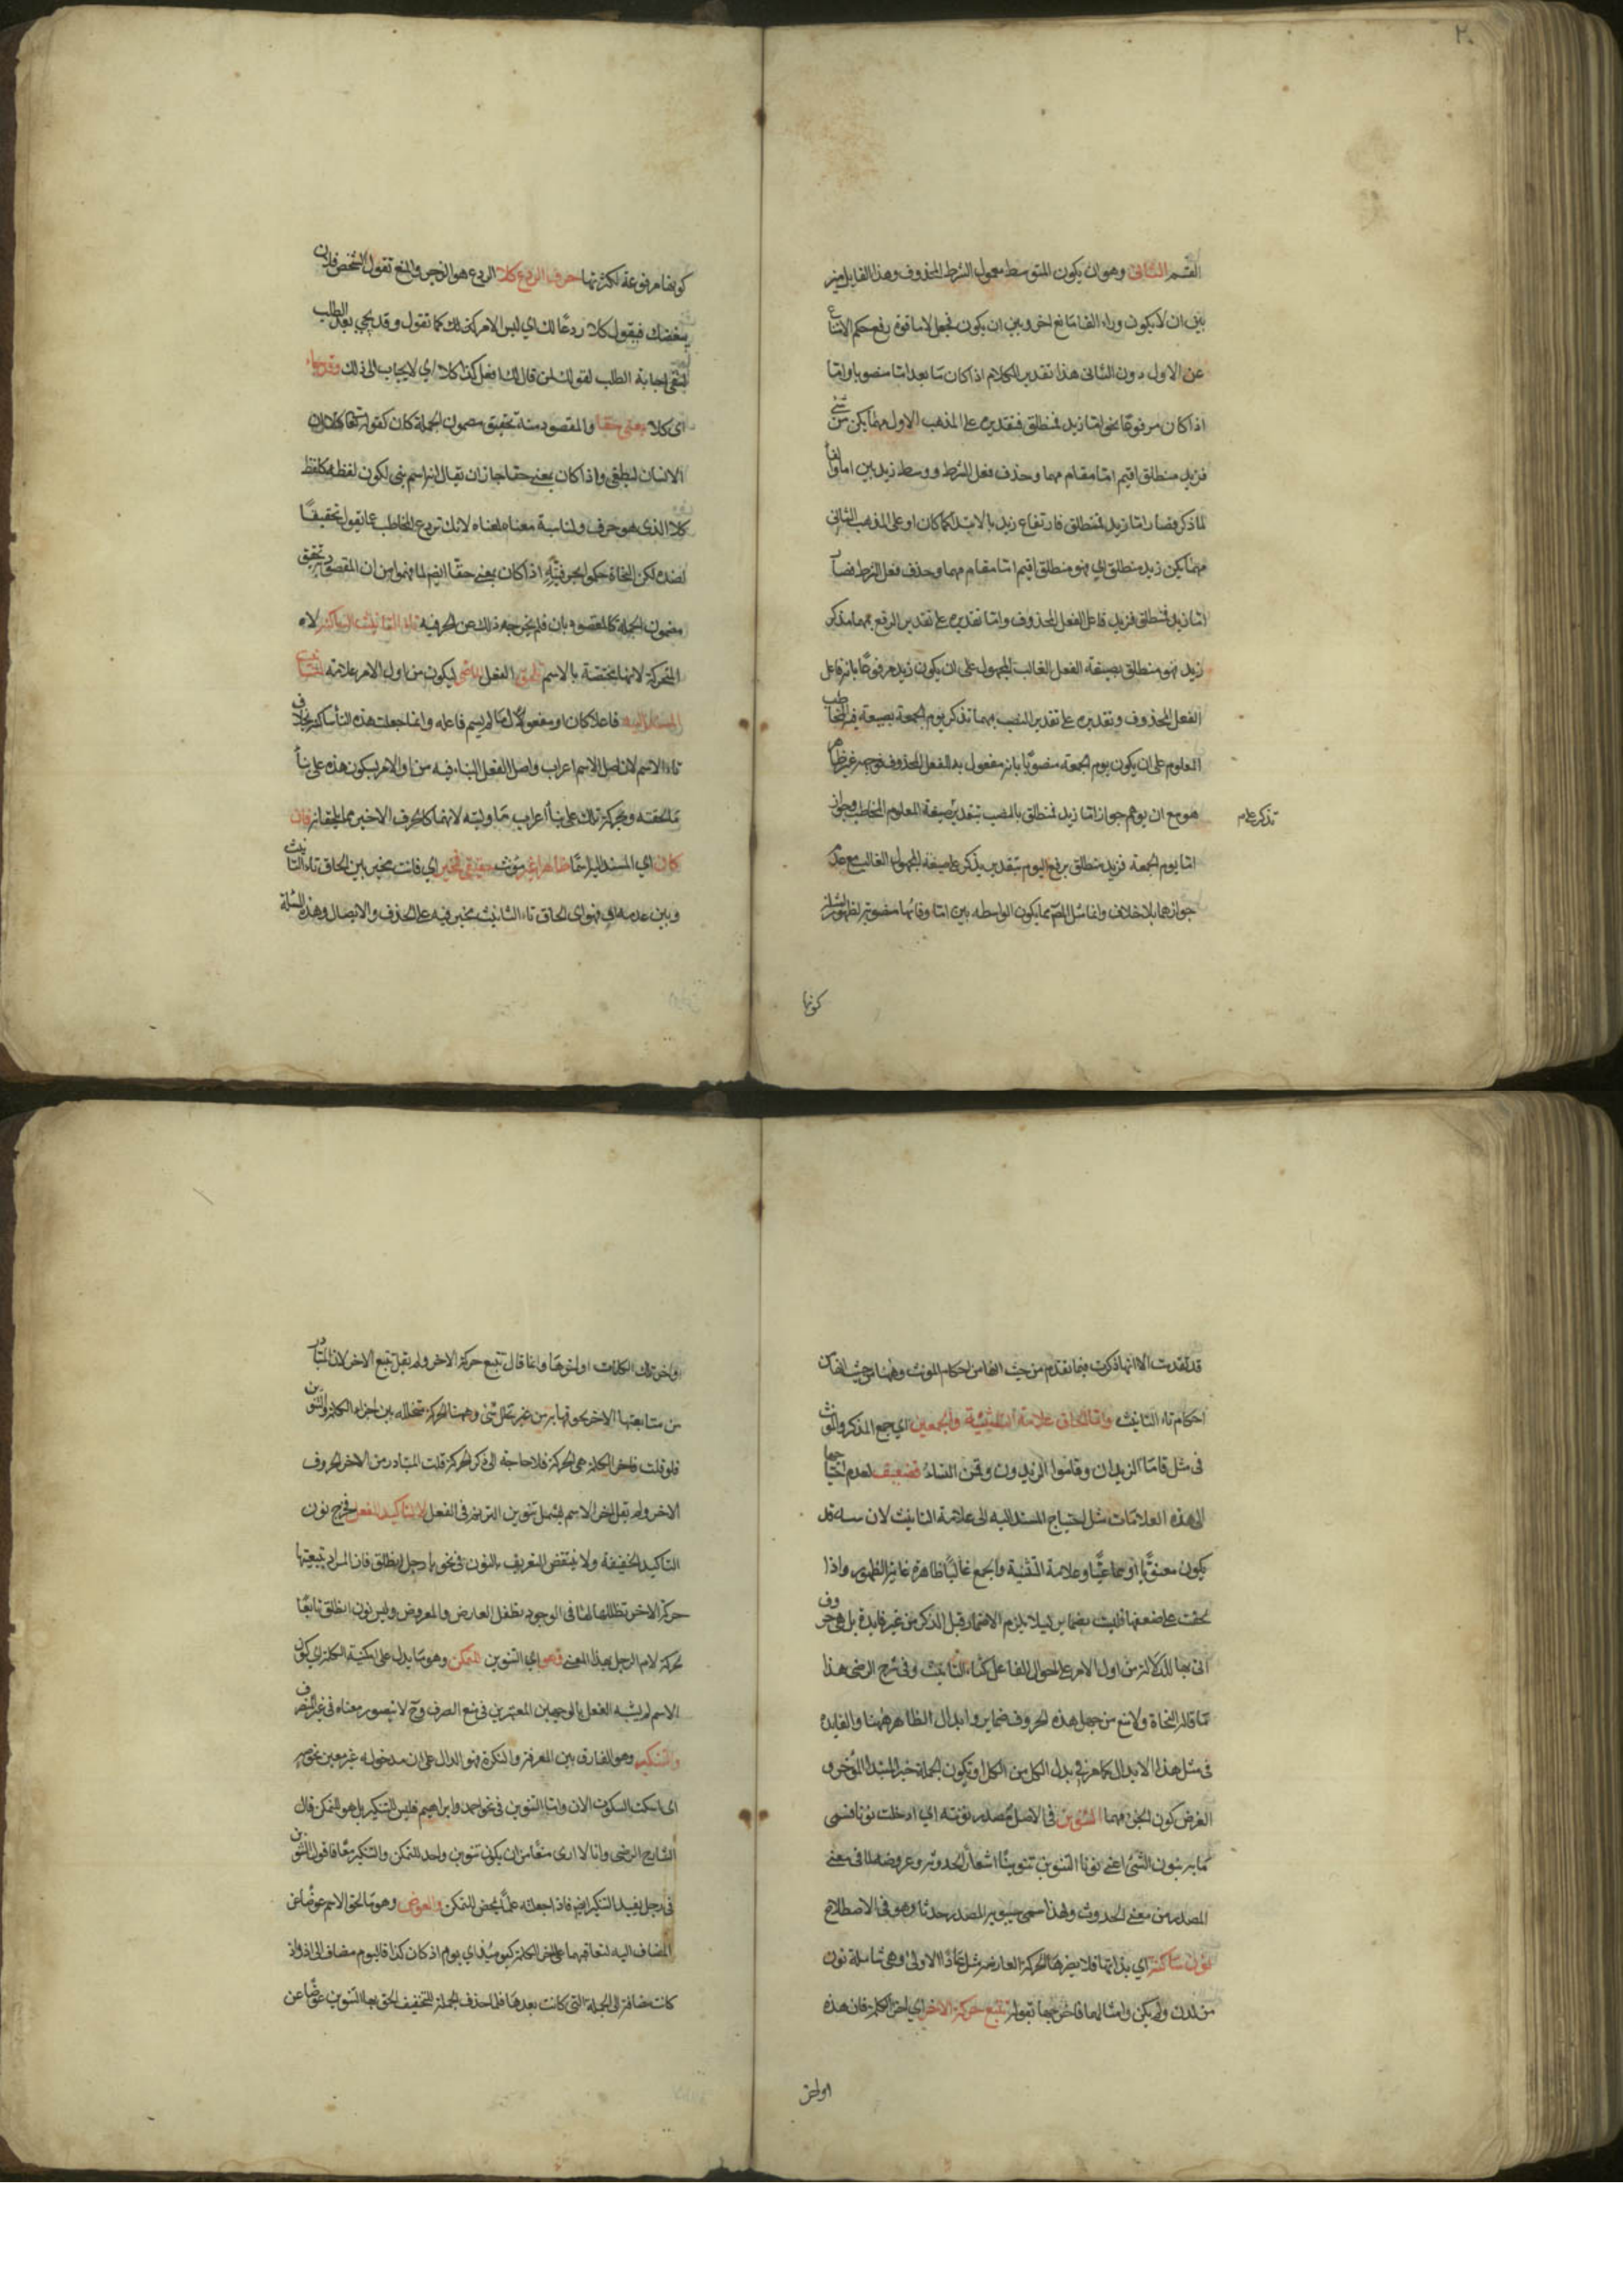 ٢٠
القسم الثانى وهو ان يكون المتوسط معمول الشرط المحذوف وهذا القايل ميز
بين ان لا يكون وراء الفا مانع اخر وبين ان يكون فجعل لاما قوة رفع حكم الامتناع
عن الاول دون الثانى هذا تقدير الكلام اذا كان ما بعد اما منصوبا واما
اذا كان مرفوعا نحو اما زيد فمنطلق فتقديره على المذهب الاول مهما يكن من شئ
فزيد منطلق اقيم اما مقام مهما وحذف فعل الشرط ووسط زيد بين اما والفا
لما ذكر فصار اما زيد فمنطلق فارتفاع زيد بالابتداء كما كان او على المذهب الثانى
مهما يكن زيد منطلق اي فهو منطلق اقيم اما مقام مهما وحذف فعل الشرط فصار
اما زيد فمنطلق فزيد فاعل الفعل المحذوف واما تقديره على تقدير الرفع بمهما يذكر
زيد فهو منطلق بصيغة الفعل الغائب المجهول على ان يكون زيد مرفوعا بانه فاعل
الفعل المحذوف وتقديره على تقدير النصب بمهما تذكر يوم الجمعة بصيغة المخاطب
المعلوم على ان يكون يوم الجمعة منصوبا بانه مفعول به للفعل المحذوف فوجهه غير ظاهر
هو مع ان يوهم جواز اما زيد فمنطلق بالنصب بتقدير صيغة المعلوم المخاطب وجواز
تذكر علام
اما يوم الجمعة فزيد منطلق برفع اليوم بتقدير يذكر على صيغة المجهول الغائب مع عدم
جوازهما بلا خلاف وانما مثل المص بما يكون الواسطه بين اما وفائها منصوبة لظهور
كونها
كونها مرفوعة لكثرتها حرف الردع كلا الردع هو الزجر والمنع تقول لشخص فلان
يبغضك فيقول كلا ردعا لك اي ليس الامر كذلك كما تقول وقد يجئ بعد الطلب
لنفى اجابة الطلب كقولك لمن قال لك افعل كذا كلا اي لا يجاب الى ذلك وقد جاء
اى كلا بمعنى حقا والمقصود منه تحقيق مضمون الجملة كان كقوله تعالى كلا ان
الانسان ليطغى واذا كان بمعنى حقا جاز ان يقال انه اسم بنى لكون لفظه كلفظ
كلا الذى هو حرف ولمناسبة معناه لمعناه لانك تردع المخاطب عما يقول تحقيقا
لضده لكن النحاة حكموا بحرفيته اذا كان بمعنى حقا ايضا لما فهموا من ان المقصود تحقيق
مضمون الجملة كالمقصود بان فلم يخرجه ذلك عن الحرفيه تاء التانيث الساكنة لا
المتحركة لانها مختصة بالاسم تلحق الفعل الماضى ليكون من اول الامر علامة لتانيث
المسند اليه فاعلا كان او مفعولا ما لم يسم فاعله وانما جعلت هذه التأ ساكنة بخلاف
تاء الاسم لان اصل الاسم اعراب واصل الفعل البناء فيه من اول الامر بسكون هذه على بنأ
ما لحقته وبحركة تلك على بنأ اعراب ما وليته لانهما كالحرف الاخير مما لحقتاه فان
كان اي المسند اليه اسما ظاهرا غير مؤنث حقيقى فمخير اي فانت مخير بين الحاق تاء التانيث
وبين عدمه او فهو اى الحاق تاء التانيث مخير فيه على الحذف والايصال وهذه المسئلة
قد تقدمت الا انها ذكرت فيما تقدم من حيث انها من احكام المونث وههنا من حيث انها من
احكام تاء التانيث واما الحاق علامة التثنية والجمعين اي جمع المذكر والمونث
فى مثل قاما الزيدان وقاموا الزيدون وقمن النساء فضعيف لعدم احتياجها
الى هذه العلامات مثل احتياج المسند اليه الى علامة التانيث لان تانيثه قد
يكون معنويا او سماعيا وعلامة التثنية والجمع غالبا ظاهرة غاية الظهور واذا
لحقت على ضعفها فليست بضماير ليلا يلزم الاضمار قبل الذكر من غير فايدة بل هى حروف
اتى بها للدلالة من اول الامر على احوال الفاعل كتاء التانيث وفى شرح الرضى هذا
ما قاله النحاة ولا منع من جعل هذه الحروف ضماير وابدال الظاهر منها والفايده
فى مثل هذا الابدال كما مر فى بدل الكل من الكل او تكون الجملة خبر المبتدأ المؤخر و
الغرض كون الخبر مهما التنوين فى الاصل مصدر نونته اي ادخلت نونا فسمى
ما به ينون الشئ اعنى نونا التنوين تنوينا اشعارا بحدوثه وعروضه لما فى معنى
المصدر من معنى الحدوث ولهذا سمى سيبويه المصدر حدثا وهو فى الاصطلاح
نون ساكنة اي بذاتها فلا يضرها الحركة العارضة مثل عادا الاولى وهى شاملة نون
من لدن ولم يكن وامثالهما فاخرجها بقوله تتبع حركة الاخر اي اخر الكلمة فان هذه
اواخر
واخر تلك الكلمات اواخرها وانما قال تتبع حركة الاخر ولم يقل تتبع الاخر لان المتبادر
من متابعتها الاخر لحوقها به من غير تخلل شئ وههنا الحركة متخللة بين اخر الكلمة والتنوين
فلو قلت فاخر الكلمة هى الحركة فلا حاجة الى ذكر الحركة قلت المتبادر من الاخر الحروف
الاخر ولم يقل اخر الاسم ليشمل تنوين الترنم فى الفعل لا لتاكيد الفعل فخرج نون
التاكيد الخفيفة ولا ينتقض التعريف بالنون فى نحو يا رجل انطلق فان المراد بتبعيتها
حركة الاخر تطفلها لها فى الوجود تطفل العارض والمعروض وليس نون انطلق تابعا
لحركة لام الرجل بهذا المعنى وهو اي التنوين للتمكن وهو ما يدل على امكنية الكلمة اي كون
الاسم لم يشبه الفعل بالوجهين المعتبرين فى منع الصرف وح لا يتصور معناه فى غير المنصرف
والتنكير وهو الفارق بين المعرفة والنكرة فهو الدال على ان مدخوله غير معين نحو صه
اى اسكت السكوت الان واما التنوين فى نحو احمد وابراهيم فليس للتنكير بل هو للتمكن قال
الشارح الرضى وانا لا ارى منعا من ان يكون تنوين واحد للتمكن والتنكير معا فاقول التنوين
فى رجل يفيد التنكير ايضا فاذا جعلته علما يمحض للتمكن والعوض وهو ما لحق الاسم عوضا عن
المضاف اليه لتعاقبهما على اخر الكلمة كيومئذ اي يوم اذ كان كذا فاليوم مضاف الى اذ واذ
كانت مضافة الى الجملة التى كانت بعدها فلما حذف الجملة للتخفيف الحق بها التنوين عوضا عن